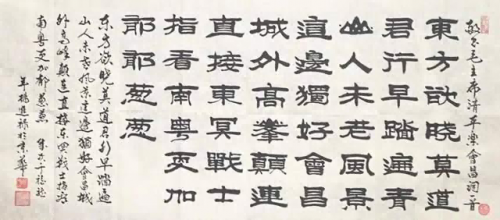 敬書毛主席清平樂會昌詞一首
東方欲曉莫道
君行早踏遍青
山人未老風景
這邊獨好會昌
城外高峯顛連
直接東冥戰士
指看南粵更加
郁郁葱葱
东方欲晓莫道君行早踏遍青
山人未老风景这边独好会昌城
外高峰颠连直接东溟战士指看
南粤更加郁郁葱葱